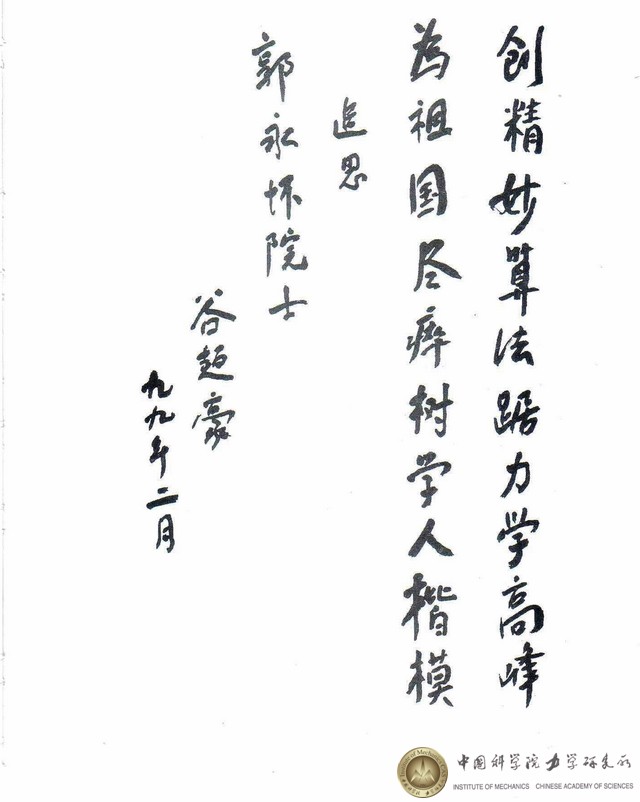 创精妙算法踞力学高峰
为祖国尽瘁树学人楷模
追思
郭永怀院士
谷超豪
九九年二月
中国科学院力学研究所
INSTITUTE OF MECHANICS CHINESE ACADEMY OF SCIENCES